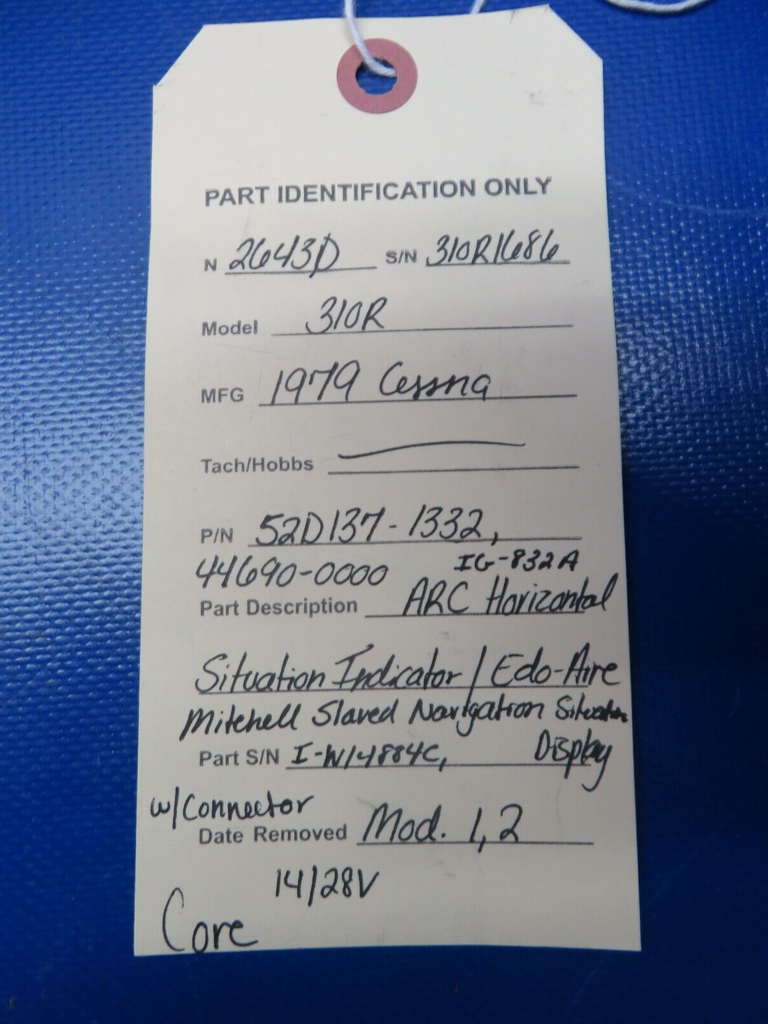 PART IDENTIFICATION ONLY
N 2643D S/N 310R1686
Model 310R
MFG 1979 Cessna
Tach/Hobbs
P/N 52D137-1332,
44690-0000 IG-832A
Part Description ARC Horizontal
Situation Indicator / Edo-Aire
Mitchell Slaved Navigation Situation
Part S/N I-W14884C, Display
w/Connector
Date Removed Mod. 1,2
14/28V
Core